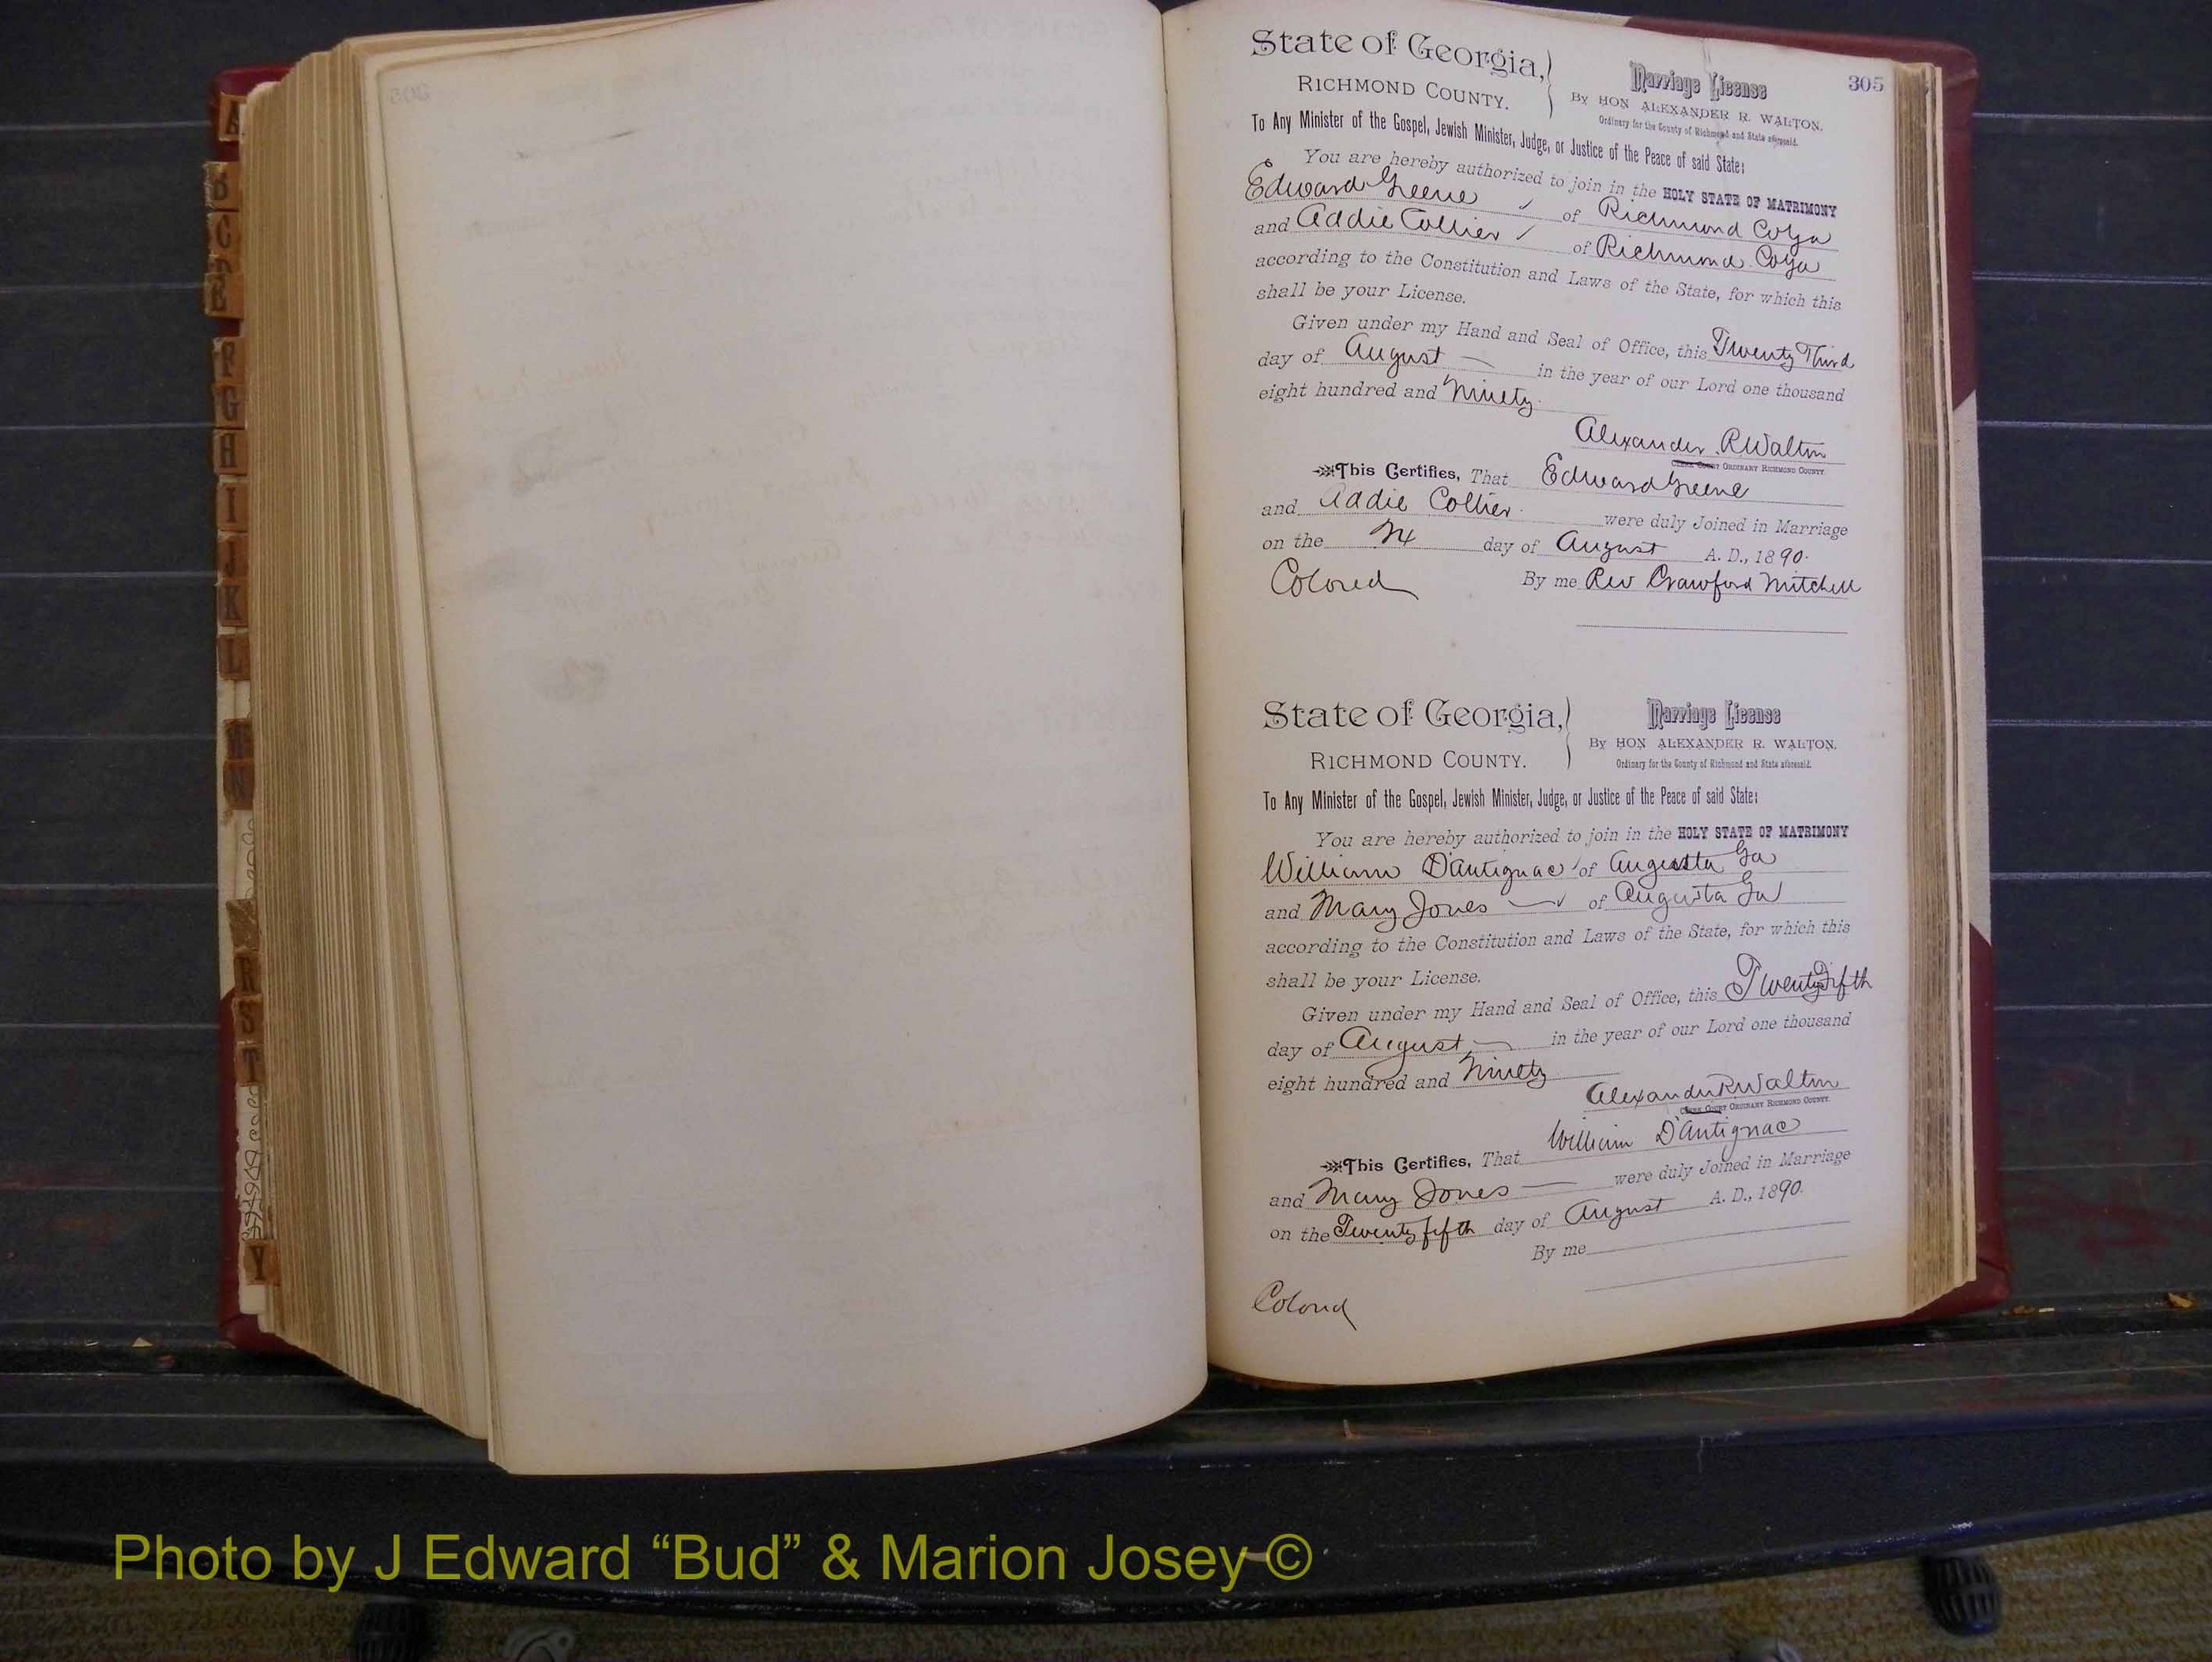 305
State of Georgia,
RICHMOND COUNTY.
Marriage License
By HON ALEXANDER R. WALTON,
Ordinary for the County of Richmond and State aforesaid.
To Any Minister of the Gospel, Jewish Minister, Judge, or Justice of the Peace of said State:
You are hereby authorized to join in the HOLY STATE OF MATRIMONY
Edward Greene of Richmond Co Ga
and Addie Collier of Richmond Co Ga
according to the Constitution and Laws of the State, for which this
shall be your License.
Given under my Hand and Seal of Office, this Twenty Third
day of August in the year of our Lord one thousand
eight hundred and Ninety
Alexander R Walton
ORDINARY RICHMOND COUNTY.
This Certifies, That Edward Greene
and Addie Collier were duly Joined in Marriage
on the day of August A. D., 1890.
Colored By me Rev Crawford Mitchell
State of Georgia,
RICHMOND COUNTY.
Marriage License
By HON ALEXANDER R. WALTON,
Ordinary for the County of Richmond and State aforesaid.
To Any Minister of the Gospel, Jewish Minister, Judge, or Justice of the Peace of said State:
You are hereby authorized to join in the HOLY STATE OF MATRIMONY
William D'Antignac of Augusta Ga
and Mary Jones of Augusta Ga
according to the Constitution and Laws of the State, for which this
shall be your License.
Given under my Hand and Seal of Office, this Twenty Fifth
day of August in the year of our Lord one thousand
eight hundred and Ninety
Alexander R Walton
ORDINARY RICHMOND COUNTY.
This Certifies, That William D'Antignac
and Mary Jones were duly Joined in Marriage
on the Twenty fifth day of August A. D., 1890.
By me
Colored
A
B
C
D
E
F
G
H
I
J
K
L
M
N
R
S
T
Y
Photo by J Edward “Bud” & Marion Josey ©